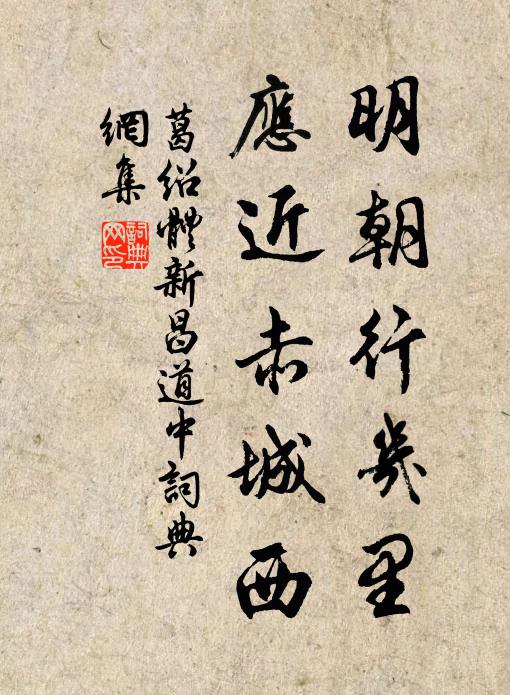 明朝行幾里
應近赤城西
葛紹體新昌道中詞典
網集
詞典
网印